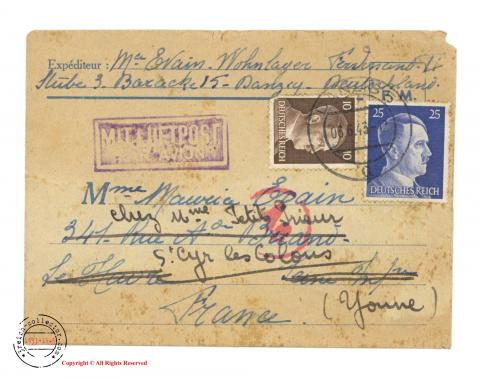 Expéditeur : Mr Evain. Wohnlager
Stube 3. Barack 15. Danzig Deutschland.
MIT LUFTPOST
PAR AVION
10 DEUTSCHES REICH 10
25 25
DEUTSCHES REICH
Mme Maurice Evain
chez Mme Petit Prieur
341 Rue Ate Briand
St Cyr les Colons
Le Havre Seine Infre
France. (Yonne)
Copyright © All Rights Reserved